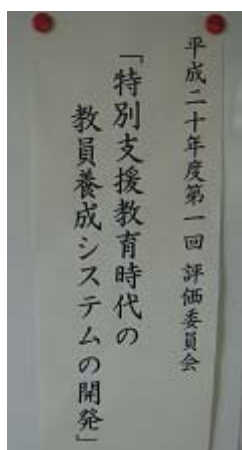 平成二十年度第一回 評価委員会
「特別支援教育時代の
教員養成システムの開発」